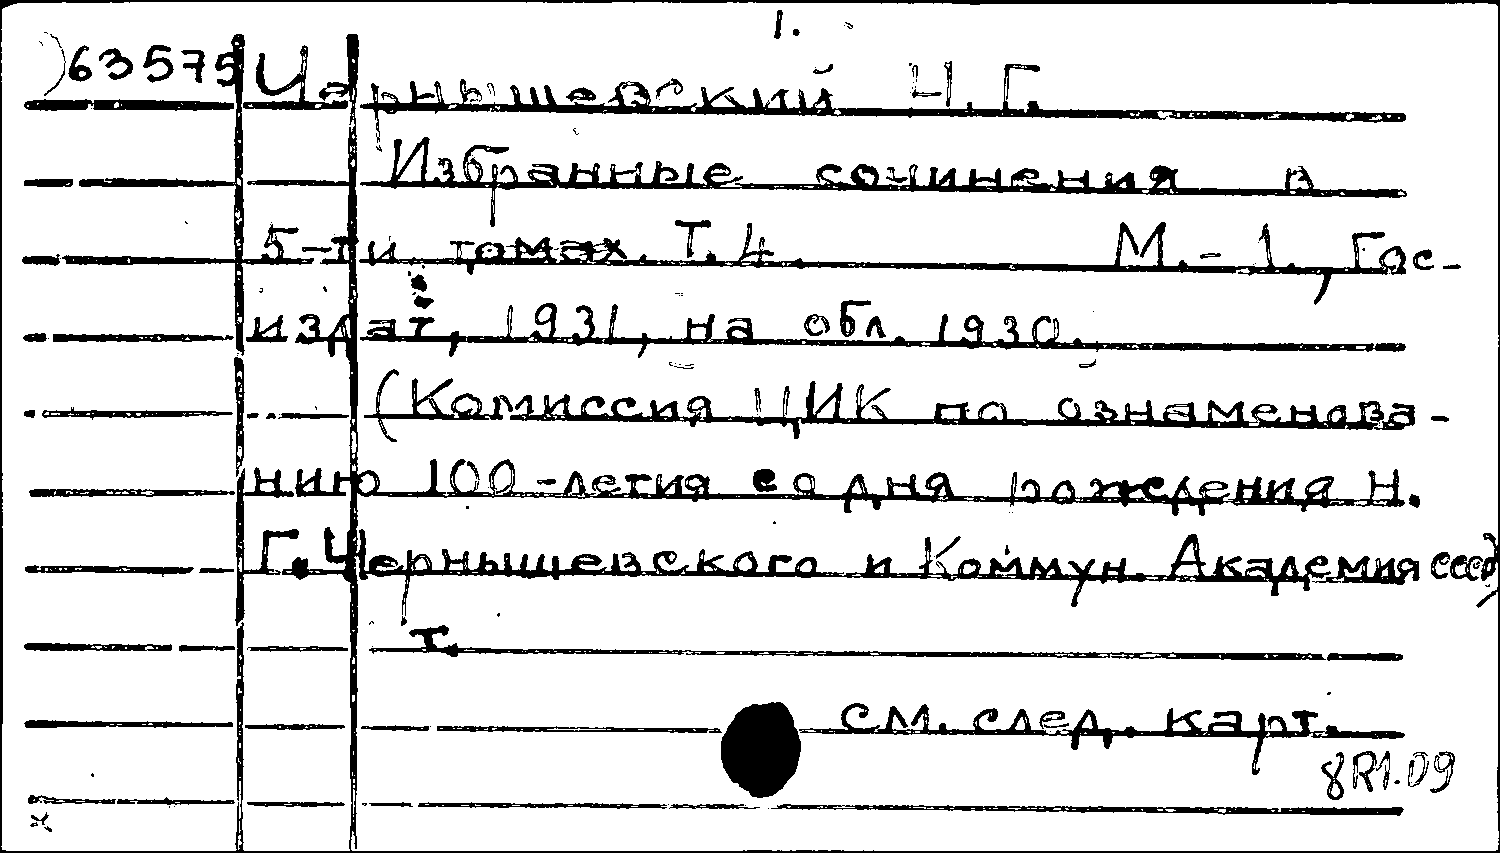 1.
63575 Чернышевский Н.Г.
Избранные сочинения в
5-ти томах. Т. 4. М.-Л., Гос-
издат, 1931, на обл. 1930.
(Комиссия ЦИК по ознаменова-
нию 100-летия со дня рождения Н.
Г. Чернышевского и Коммун. Академия СССР)
т.
см. след. карт.
8R1.09